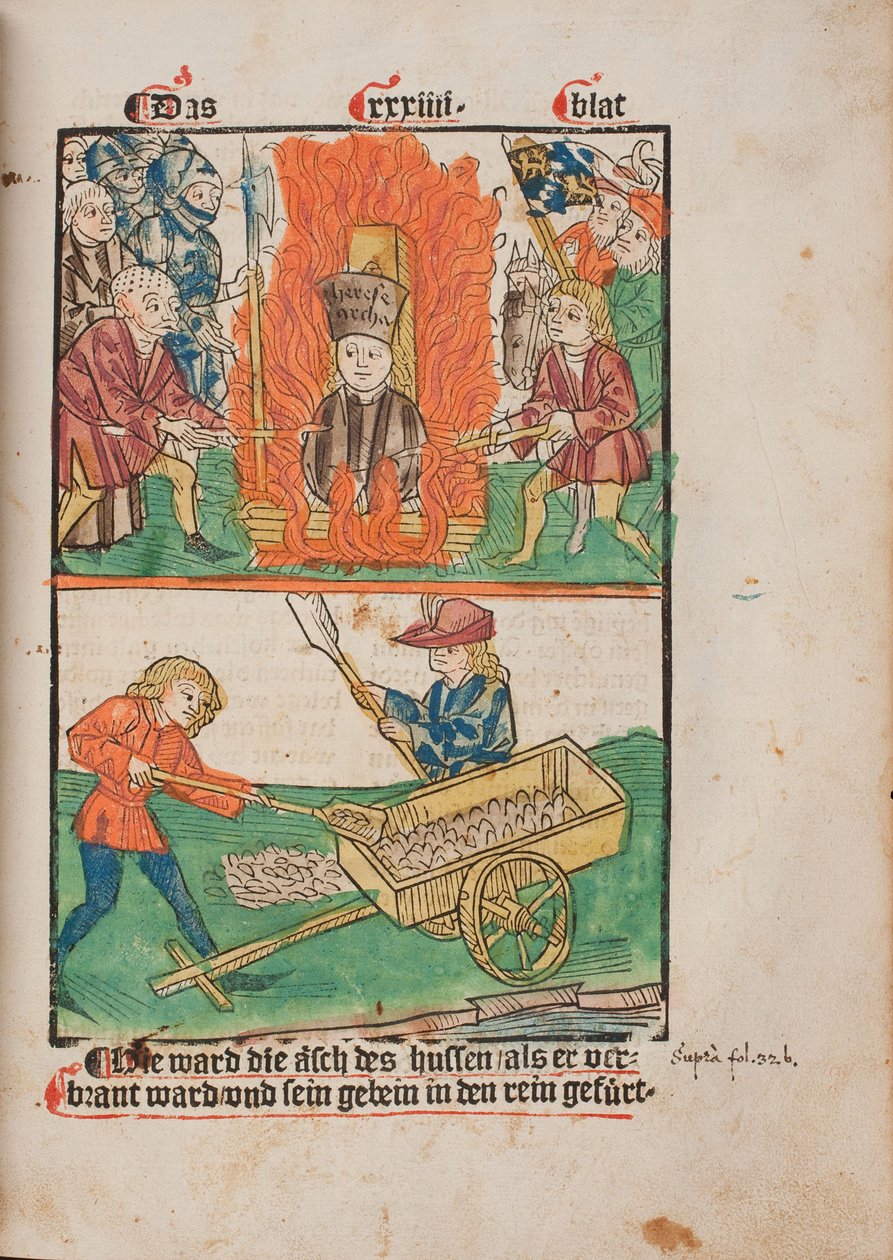 Das xxxiiii. blat
herese
archa
Hie ward die äsch des hussen / als er ver⸗
brant ward / vnd sein gebein in den rein gefürt.
Suprà fol. 32 b.